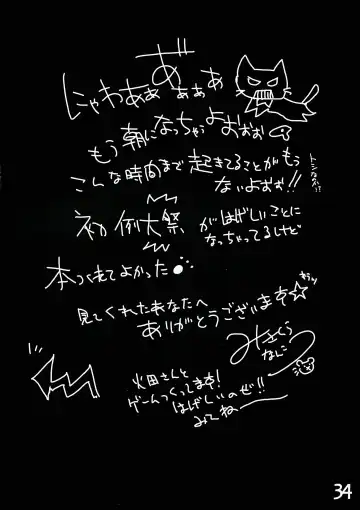 にゃわあぁあ"ぁぁぁ
もう朝になっちゃうよおぉぉ
こんな時間まで起きてることがもう
ないよぉぉ!!
初例大祭がはげしいことに
なっちゃってるけど
本つくれてよかった
見てくれたあなたへ
ありがとうございます☆
みさくら
なんこつ
火田さんと
ゲームつくってます!
はげしいのぜ!!
みてねー
34